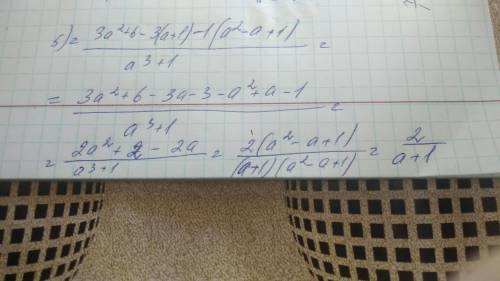 5) = (3a²+6-3(a+1)-1(a²-a+1))/(a³+1) =
= (3a²+6-3a-3-a²+a-1)/(a³+1) =
= (2a²+2-2a)/(a³+1) = (2(a²-a+1))/((a+1)(a²-a+1)) = 2/(a+1)